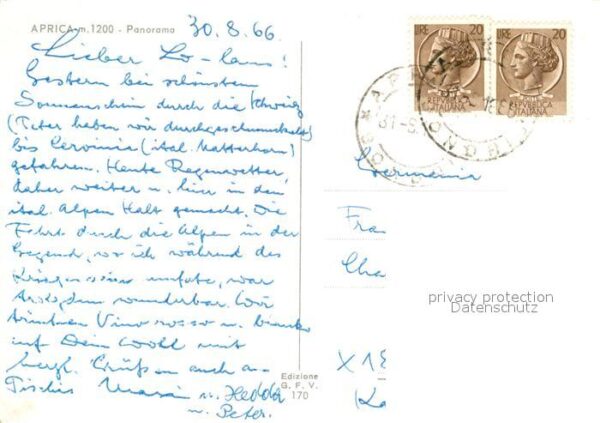 APRICA m. 1200 - Panorama
30.8.66
Lieber
Gestern bei schönstem
Sonnenschein durch die Schweiz
(Peter haben wir durchgeschmuggelt)
bis Cervinia (ital. Matterhorn)
gefahren. Heute Regenwetter,
daher weiter u. hier in den
ital. Alpen Halt gemacht. Die
Fahrt durch die Alpen in der
Gegend, wo ich während des
Krieges war
trotzdem wunderbar. Wir
trinken Vino rosso u. bianko
auf Dein Wohl mit
herzl. Grüßen auch an
u. Hedda
u. Peter.
Edizione
G. F. V.
170
LIRE 20
REPVBBLICA
ITALIANA
LIRE 20
REPVBBLICA
ITALIANA
APRICA
SONDRIO
31-8
Germania
Fra
Cha
X 1
privacy protection
Datenschutz